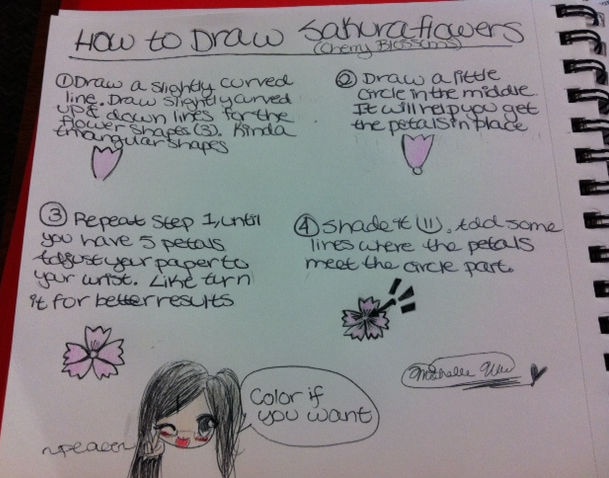 How to Draw Sakura flowers
(Cherry Blossoms)
① Draw a slightly curved
line. Draw slightly curved
up & down lines for the
flower shapes (s). Kinda
triangular shapes
② Draw a little
circle in the middle
It will help you get
the petals in place
③ Repeat step 1, until
you have 5 petals
Adjust your paper to
your wrist. Like turn
it for better results
④ Shade it (11). Add some
lines where the petals
meet the circle part.
Color if
you want
Michelle